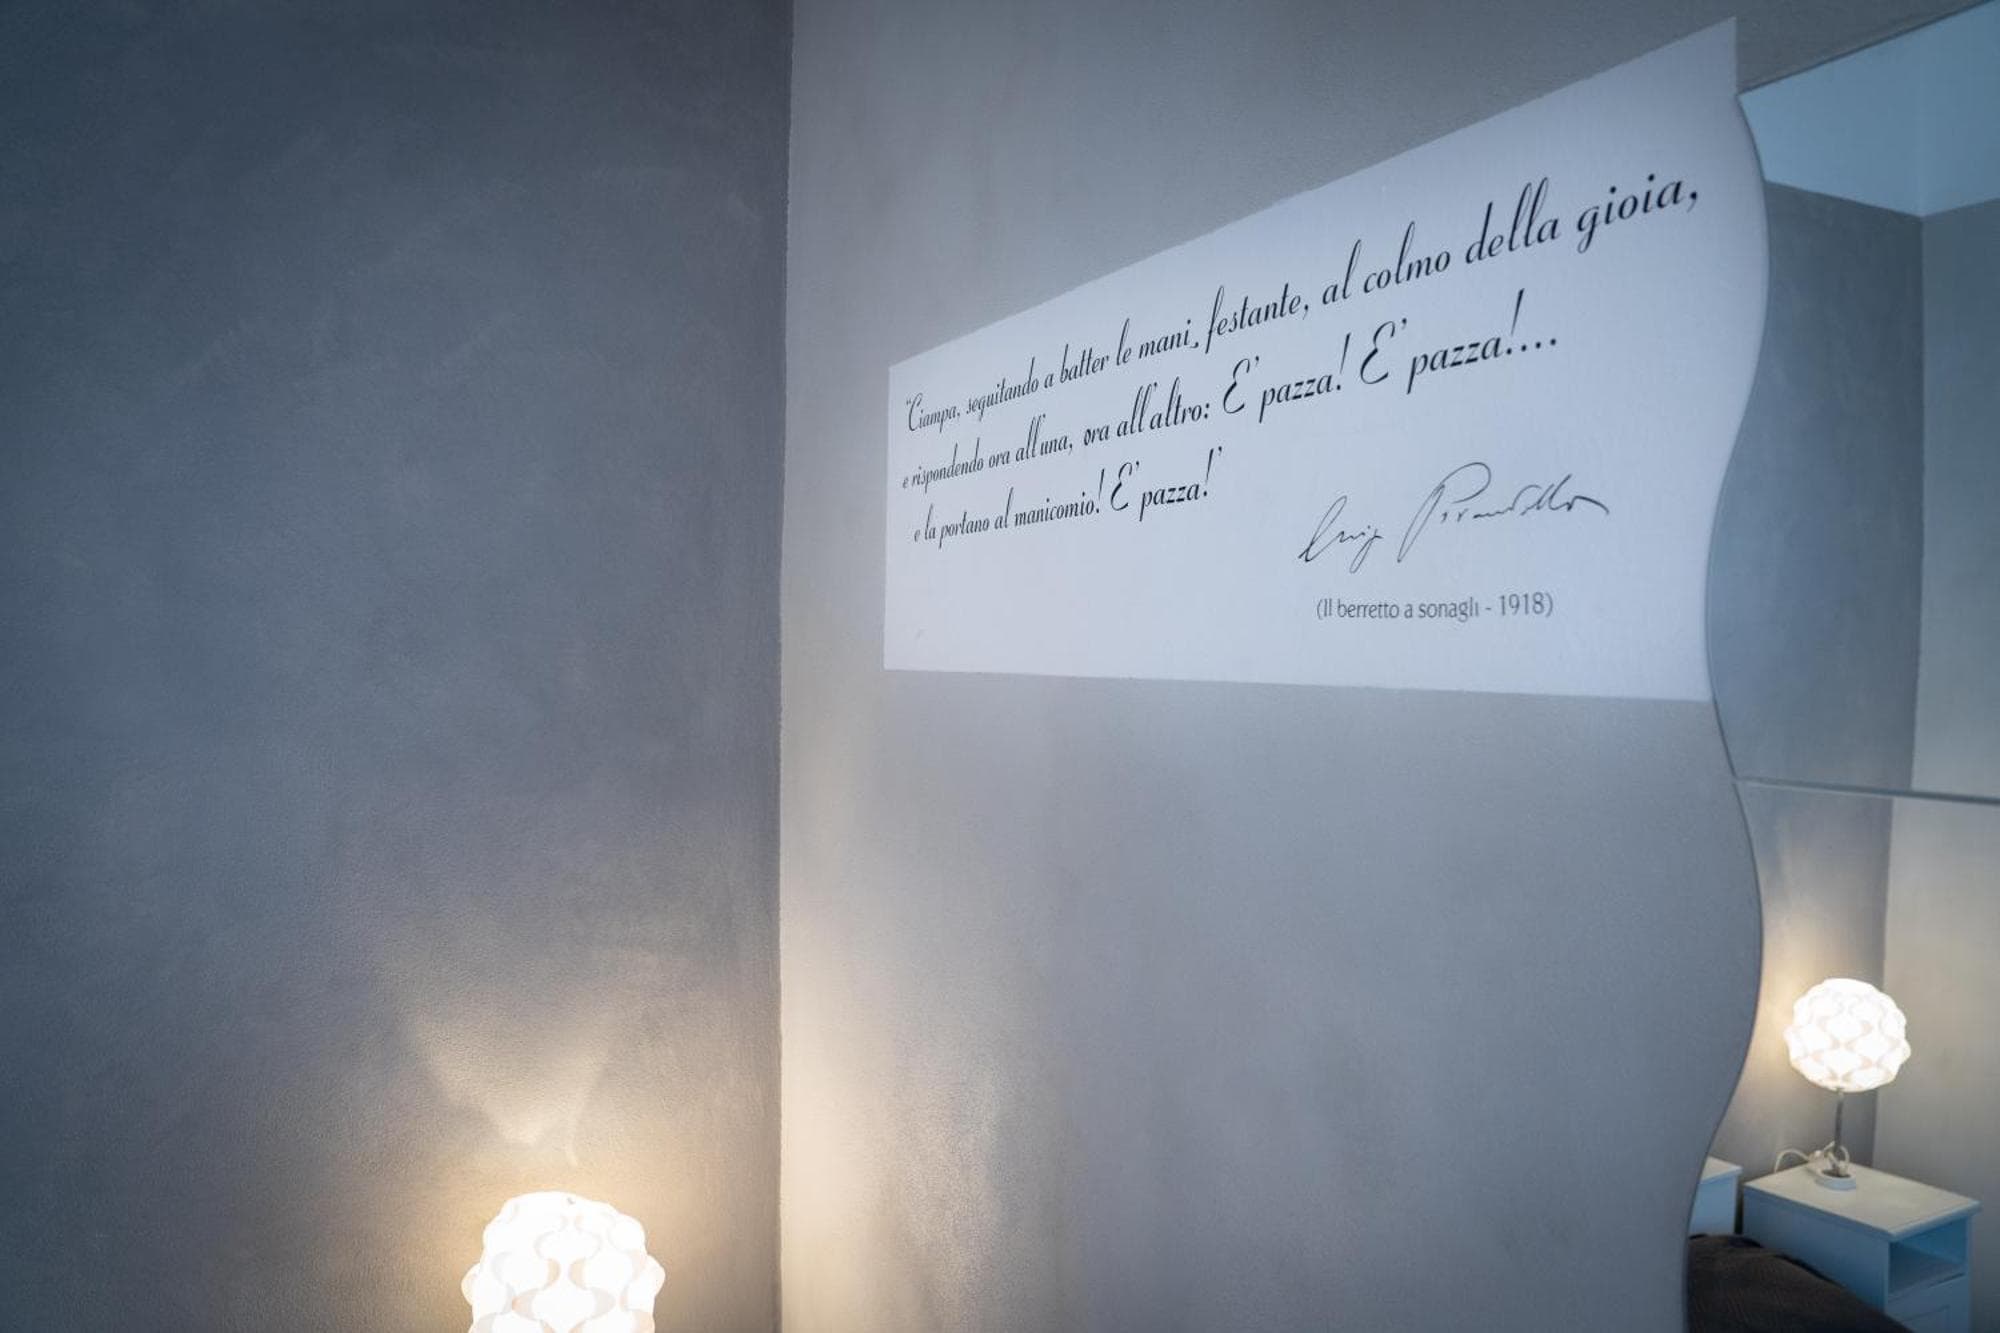 “Ciampa, seguitando a batter le mani, festante, al colmo della gioia,
e rispondendo ora all'una, ora all'altro: E' pazza! E' pazza!....
e la portano al manicomio! E' pazza!'
Luigi Pirandello
(Il berretto a sonagli - 1918)